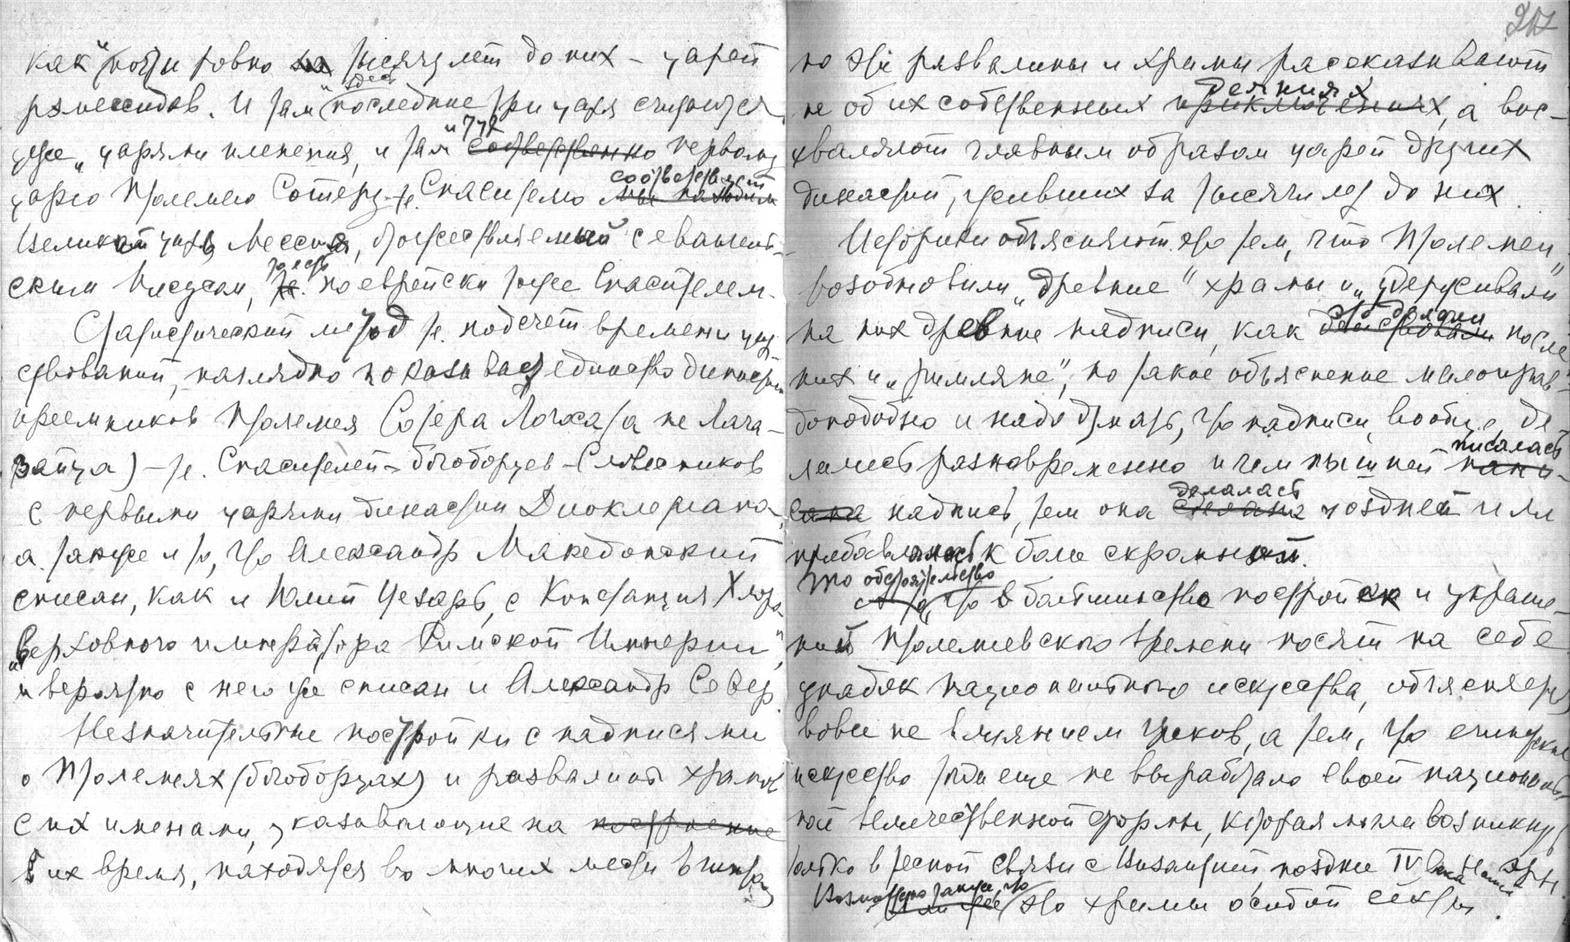 как почти ровно за тысячу лет до них – царей
рамессидов. И там последние три царя считаются
уже „царями пленения, и там и тут соответственно первому
царю Птолемею Сотеру т.е. Спасителю соответствует мы находим
Великий царь Мессия, божественный с евангель-
ским Иисусом, то есть по еврейски тоже Спасителем.
Статистический метод т.е. подсчет времени цар-
ствований, наглядно показывает единство династии
преемников Птолемея Сотера Логхата не Лага-
зайца) – т.е. Спасителей – богоборцев – Словесников
с первыми царями династии Диоклетиана,
а также и то, что Александр Македонский
списан, как и Юлий Цезарь, с Констанция Хлора
„Верховного императора Римской Империи",
и вероятно с него же списан и Александр Север.
Незначительные постройки с надписями
о Птолемеях (богоборцах) и развалины храмов
с их именами, указывающие на построение
в их время, находятся во многих местах Египта
но эти развалины и храмы рассказывают
не об их собственных деяниях приключениях, а вос-
хваляют главным образом царей других
династий, живших за тысячи лет до них.
Историки объясняют это тем, что Птолемеи
возобновили „древние" храмы и „удерживали"
на них древние надписи, как это делали действовали после
них и „римляне", но такое объяснение малоправ-
доподобно и надо думать, что надписи, вообще, де-
лались разновременно и чем пышней писалась напи-
сана надпись, тем она делалась сделана поздней или
прибавлялась к более скромной.
Это обстоятельство
что в большинстве построек и украше-
ний Птолемеевского времени носят на себе
упадок национального искусства, объясняется
вовсе не влиянием греков, а тем, что египетское
искусство тогда еще не выработало своей националь-
ной величественной формы, которая могла возникнуть
только в тесной связи с Византией позднее IV века нашей эры.
Возможно также что или же это храмы особой секты.